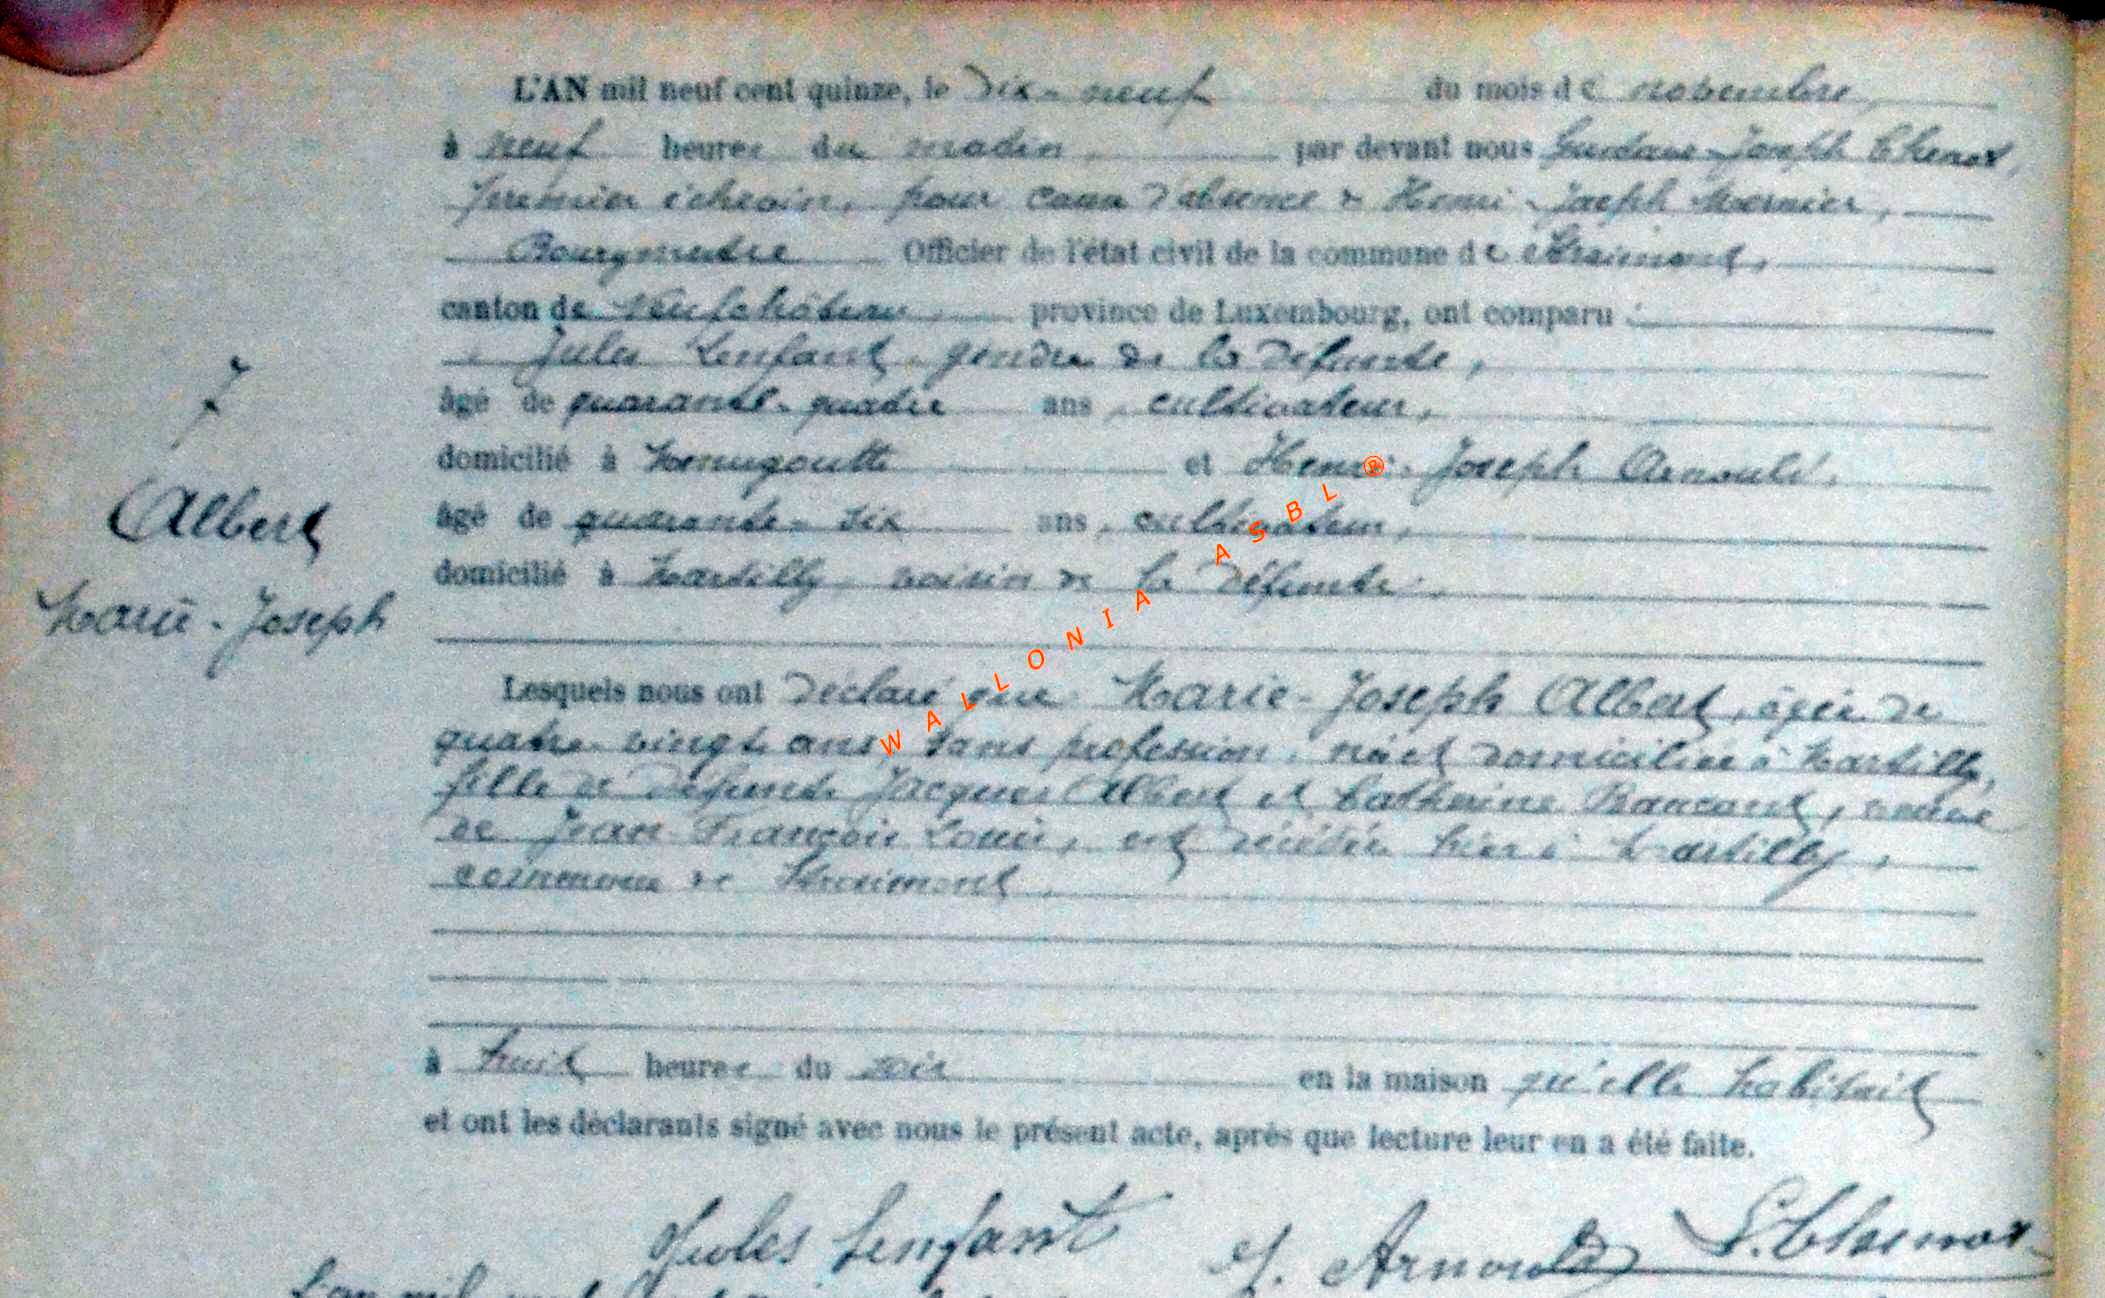 L'AN mil neuf cent quinze, le dix-neuf du mois de novembre,
à neuf heures du matin, par devant nous Gustave Joseph
premier échevin, pour cause d'absence de Henri Joseph
Bourgmestre Officier de l'état civil de la commune de Straimont,
canton de Neufchâteau, province de Luxembourg, ont comparu :
Jules Lenfant, gendre de la défunte,
âgé de quarante-quatre ans, cultivateur,
domicilié à Menugoutte et Henri Joseph Arnould,
âgé de quarante-six ans, cultivateur,
domicilié à Martilly, voisin de la défunte.
7
Albert
Marie-Joseph
Lesquels nous ont déclaré que Marie-Joseph Albert, âgée de
quatre-vingts ans, sans profession, née et domiciliée à Martilly,
fille de défunts Jacques Albert et Catherine veuve
de Jean François Louis, est décédée hier à Martilly,
commune de Straimont,
à huit heures du soir en la maison qu'elle habitait
et ont les déclarants signé avec nous le présent acte, après que lecture leur en a été faite.
Jules Lenfant H. Arnould
L'an mil neuf
WALLONIA ASBL ®